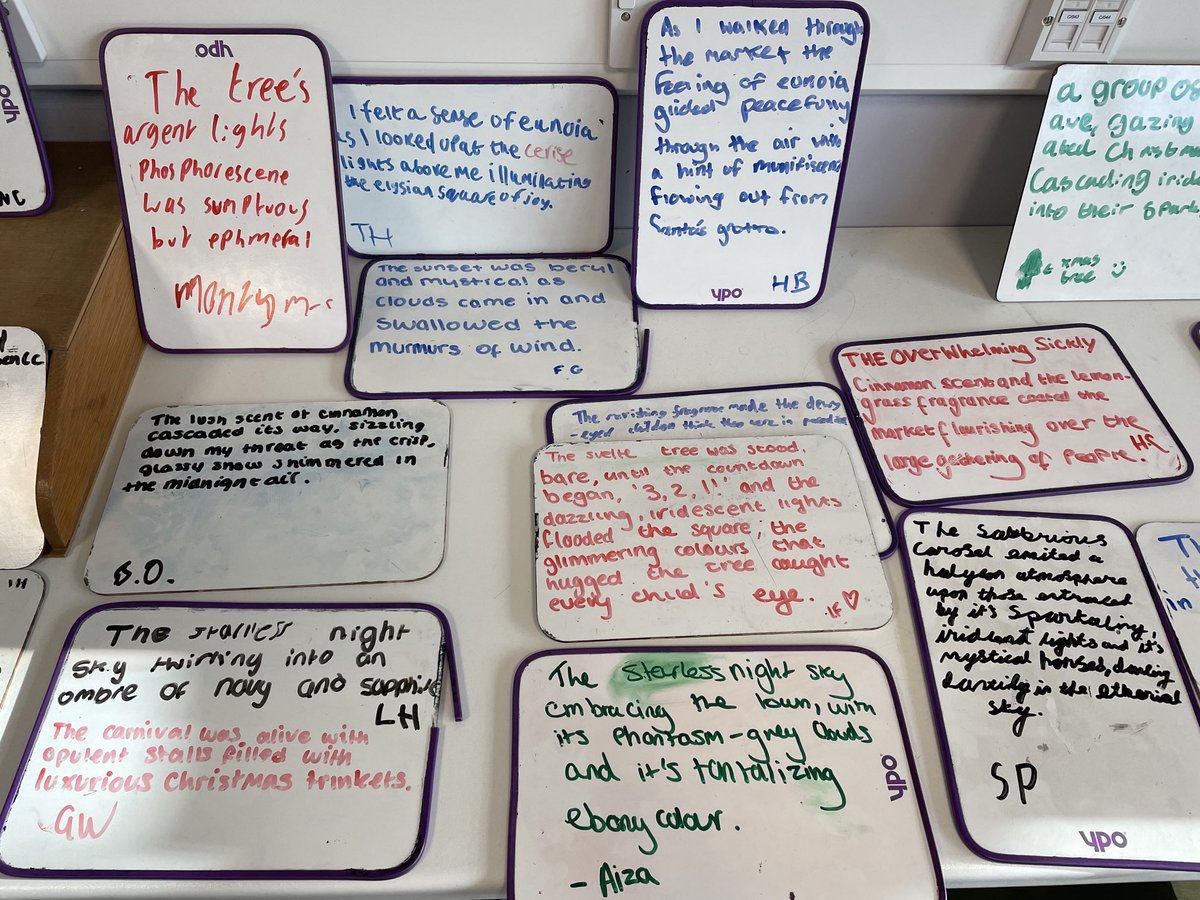 odh
The tree's
argent lights
phosphorescene
was sumptuous
but ephmeral
I felt a sense of eunoia
as I looked up at the cerise
lights above me illumilating
the elysian square of joy.
TH
As I walked through
the market the
feeling of eunoia
glided peacefully
through the air with
a hint of munifiscence
flowing out from
Santa's grotto.
HB
ypo
a group of
ave, gazing
Cascading irid
into their spark
xmas
tree
The sunset was beryl
and mystical as
clouds came in and
swallowed the
murmurs of wind.
FG
odh
NC
The lush scent of cinnamon
cascaded its way, sizzling
down my throat as the crisp,
glassy snow shimmered in
the midnight air.
B.O.
The ravishing fragrance made the dewy
-eyed children think they were in paradise
The svelte tree was stood,
bare, until the countdown
began, '3, 2, 1!' and the
dazzling, iridescent lights
flooded the square, the
glimmering colours that
hugged the tree caught
every child's eye.
THE OVERWhelming Sickly
Cinnamon scent and the lemon-
grass fragrance coated the
market flourishing over the
large gathering of people.
The starless night
sky twirling into an
ombre of navy and sapphire
LH
The carnival was alive with
opulent stalls filled with
luxurious Christmas trinkets.
GW
The starless night sky
embracing the town, with
its phantasm-grey clouds
and it's tantalizing
ebony colour.
- Aiza
ypo
The
carosel emitted a
halcyon atmosphere
upon those entranced
by it's sparkling,
lights and it's
mystical horses,
in the
sky.
SP
ypo